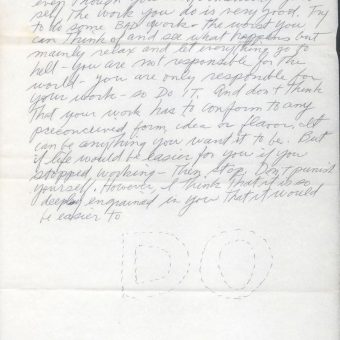 even though you
self. The work you do is very good. Try
to do some BAD work - the worst you
can think of and see what happens but
mainly relax and let everything go to
hell - you are not responsible for the
world - you are only responsible for
your work - so DO IT. And don't think
that your work has to conform to any
preconceived form, idea or flavor. It
can be anything you want it to be. But
if life would be easier for you if you
stopped working - then stop. Don't punish
yourself. However, I think that it is so
deeply engrained in you that it would
be easier to
DO